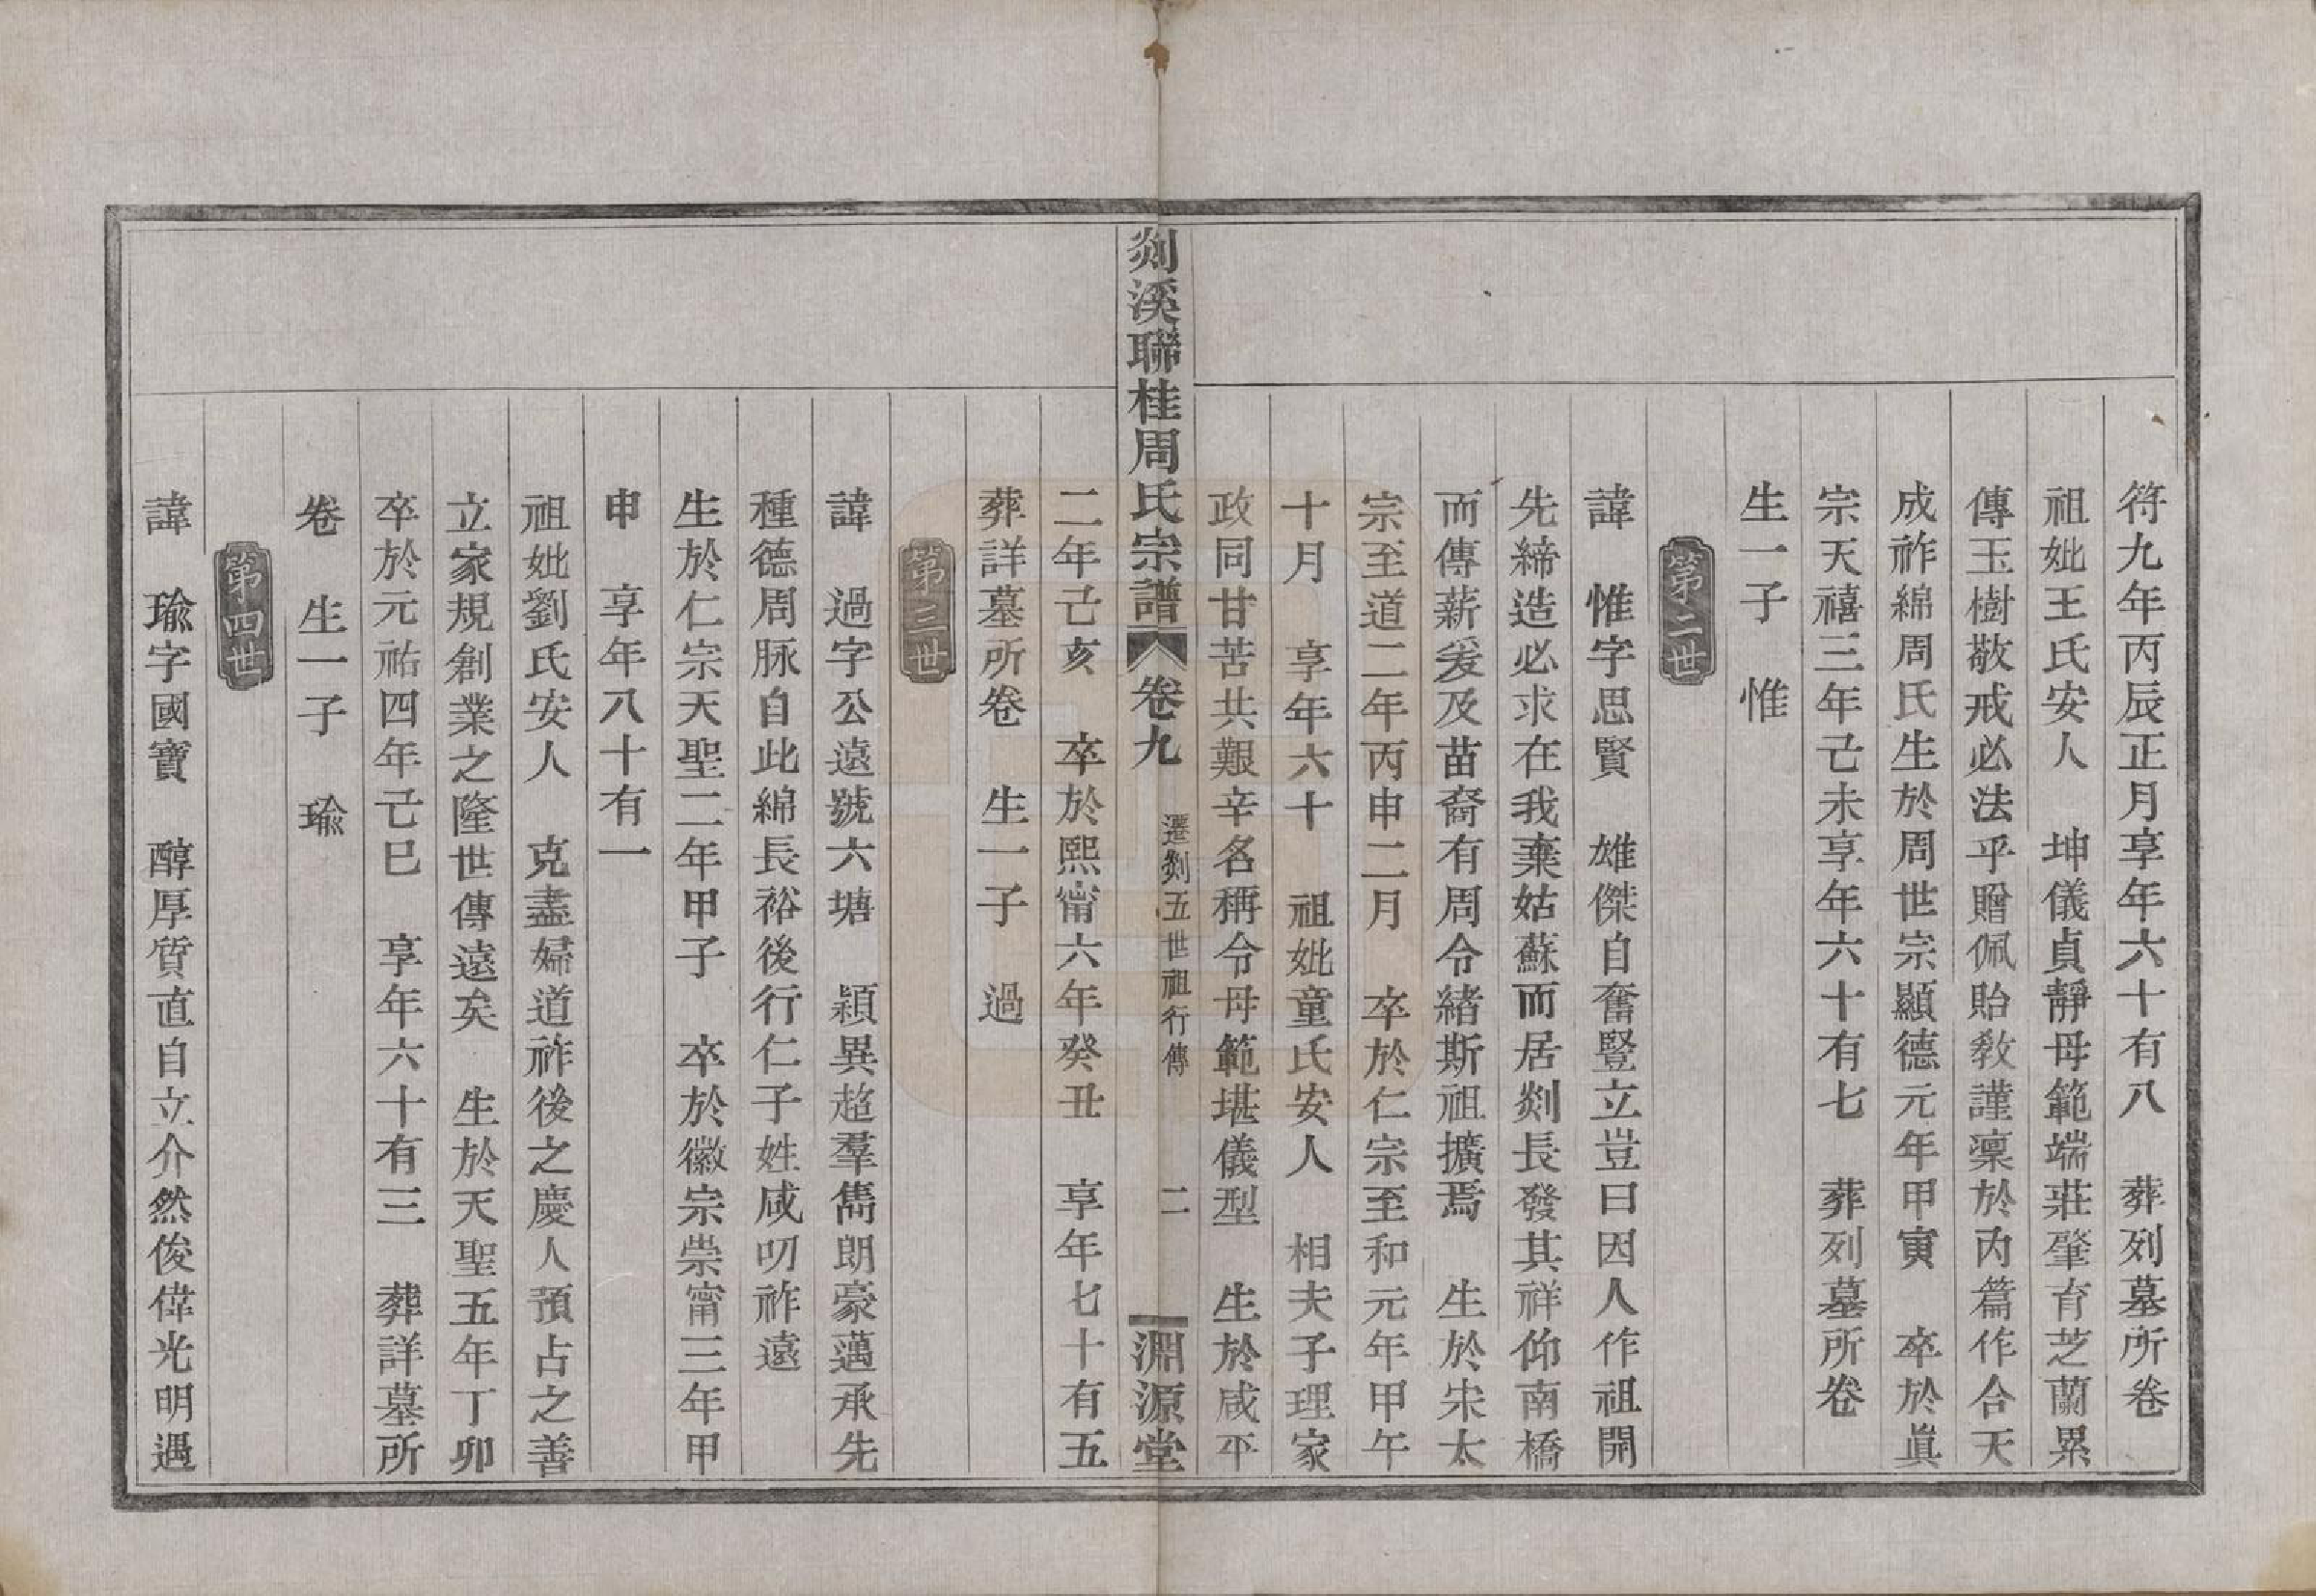 符九年丙辰正月享年六十有八　葬列墓所卷
祖妣王氏安人　坤儀貞靜母範端莊肇育芝蘭累
傳玉樹敬戒必法乎贈佩貽教謹凜於內篇作合天
成祚綿周氏生於周世宗顯德元年甲寅　卒於眞
宗天禧三年己未享年六十有七　葬列墓所卷
生一子　惟
第二世
諱　惟字思賢　雄傑自奮豎立豈曰因人作祖開
先締造必求在我棄姑蘇而居剡長發其祥仰南橋
而傳薪爰及苗裔有周令緒斯祖擴焉　生於宋太
宗至道二年丙申二月　卒於仁宗至和元年甲午
十月　享年六十　祖妣童氏安人　相夫子理家
政同甘苦共艱辛名稱令母範堪儀型　生於咸平
剡溪聯桂周氏宗譜　卷九　遷剡五世祖行傳　二　淵源堂
二年己亥　卒於熙甯六年癸丑　享年七十有五
葬詳墓所卷　生一子　過
第三世
諱　過字公遠號六塘　穎異超羣雋朗豪邁承先
種德周脉自此綿長裕後行仁子姓咸叨祚遠
生於仁宗天聖二年甲子　卒於徽宗崇甯三年甲
申　享年八十有一
祖妣劉氏安人　克盡婦道祚後之慶人預占之善
立家規創業之隆世傳遠矣　生於天聖五年丁卯
卒於元祐四年己巳　享年六十有三　葬詳墓所
卷　生一子　瑜
第四世
諱　瑜字國寶　醇厚質直自立介然俊偉光明遇